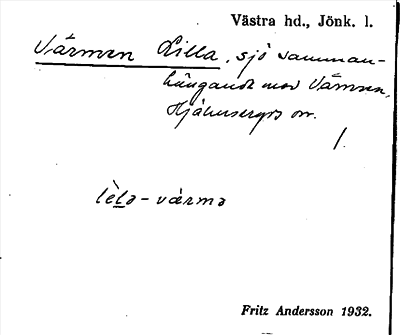 Västra hd., Jönk. l.
Värmen Lilla, sjö samman-
hängande med Värmen,
Hjälmseryds sn.
1.
lèla - vármə
Fritz Andersson 1932.